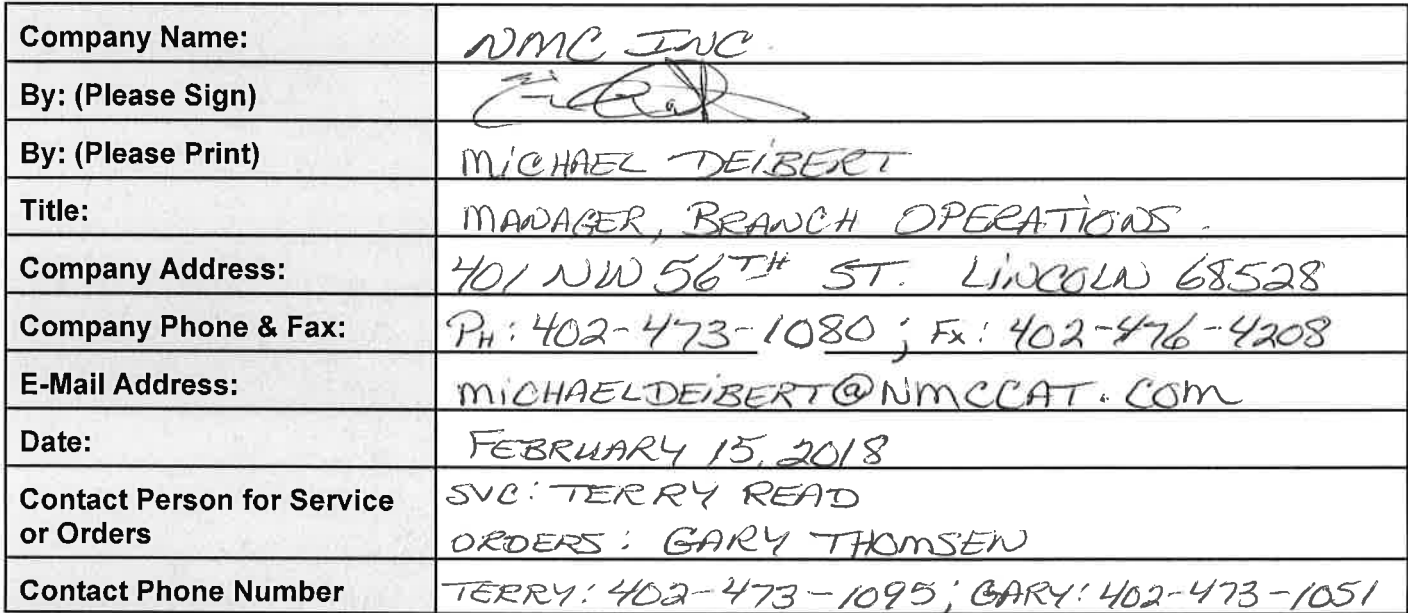 Company Name: NMC INC.
By: (Please Sign)
By: (Please Print) MICHAEL DEIBERT
Title: MANAGER, BRANCH OPERATIONS.
Company Address: 401 NW 56TH ST. LINCOLN 68528
Company Phone & Fax: PH: 402-473-1080; FX: 402-476-4208
E-Mail Address: MICHAELDEIBERT@NMCCAT.COM
Date: FEBRUARY 15, 2018
Contact Person for Service or Orders
SVC: TERRY READ
ORDERS: GARY THOMSEN
Contact Phone Number TERRY: 402-473-1095; GARY: 402-473-1051